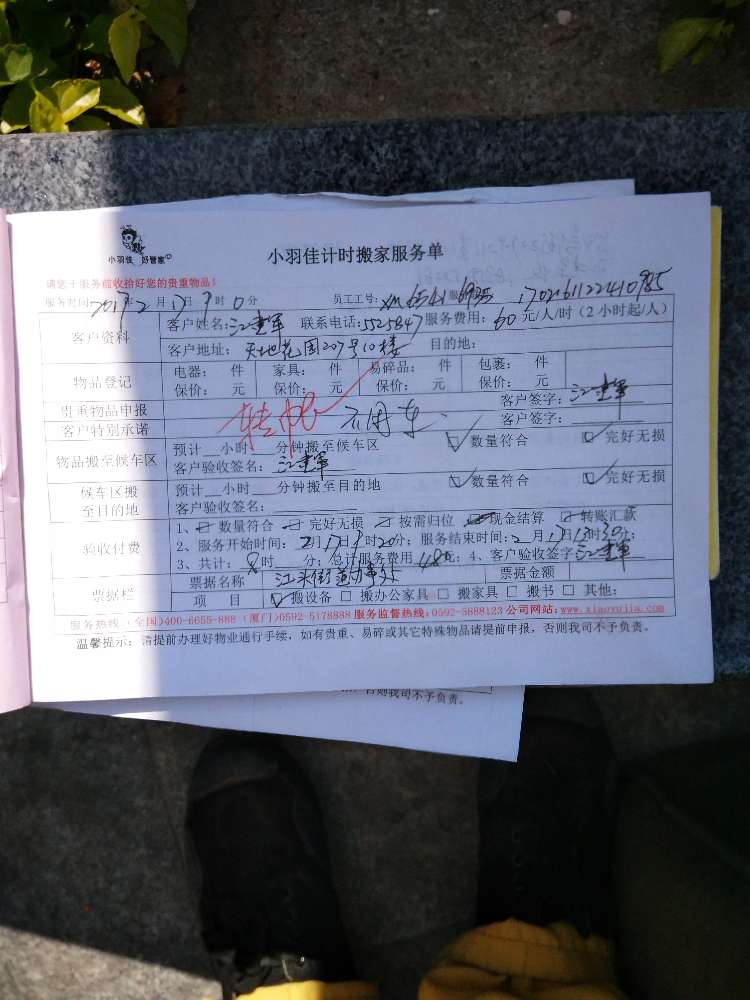 小羽佳 好管家
小羽佳计时搬家服务单
请您于服务前收拾好您的贵重物品!
服务时间:2017年2月17日9时0分 员工工号: 1702161122410985
客户资料
客户姓名:江建军 联系电话:5525847 服务费用:60元/人/时(2小时起/人)
客户地址:天地花园207号10楼 目的地:
物品登记
电器: 件 家具: 件 易碎品: 件 包裹: 件
保价: 元 保价: 元 保价: 元 保价: 元
贵重物品申报 客户签字:江建军
客户特别承诺 客户签字:
转帐 不用车
物品搬至候车区
预计__小时 分钟搬至候车区 ☑数量符合 ☑完好无损
客户验收签名:江建军
候车区搬至目的地
预计__小时 分钟搬至目的地 ☑数量符合 ☑完好无损
客户验收签名:
验收付费
1、☑数量符合 ☑完好无损 ☑按需归位 ☑现金结算 ☑转账汇款
2、服务开始时间:2月17日9时20分;服务结束时间:2月17日13时30分;
3、共计:8时 分;总计服务费用480元;4、客户验收签字江建军
票据栏
票据名称 江头街道办事处 票据金额
项 目 ☑搬设备 □搬办公家具 □搬家具 □搬书 □其他:
服务热线(全国)400-6655-888(厦门)0592-5178888 服务监督热线:0592-5888123 公司网站:www.xiaoyujia.com
温馨提示:请提前办理好物业通行手续,如有贵重、易碎或其它特殊物品请提前申报,否则我司不予负责。
否则我司不予负责。